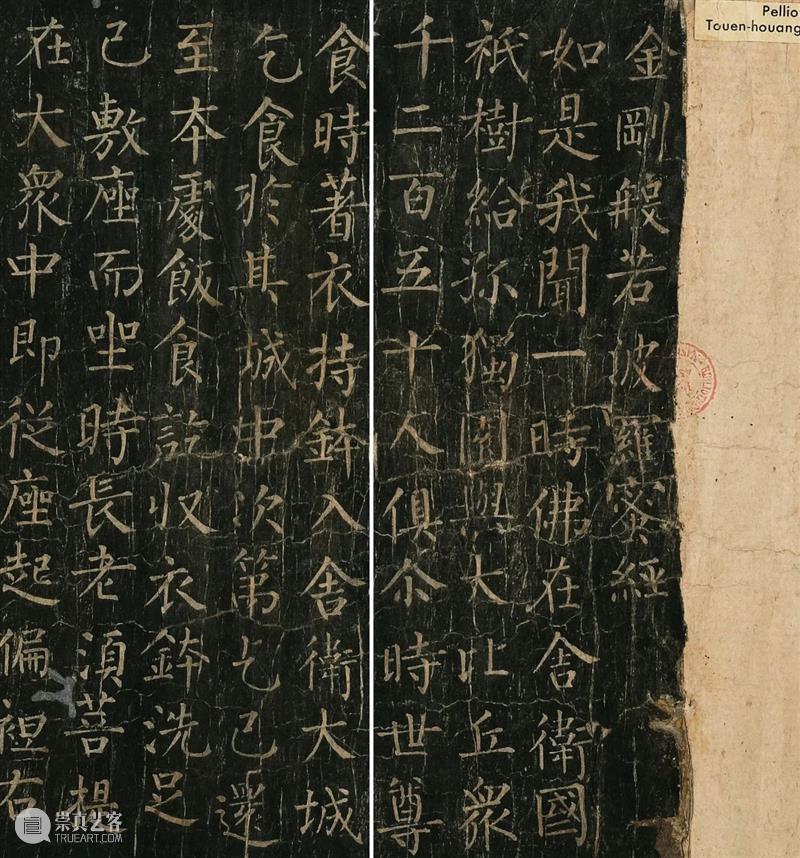 Pellio
Touen-houang
金剛般若波羅蜜經
如是我聞一時佛在舍衛國
祇樹給孤獨園與大比丘衆
千二百五十人俱尒時世尊
食時著衣持鉢入舍衛大城
乞食扵其城中次第乞已還
至本處飯食訖収衣鉢洗足
已敷座而坐時長老須菩提
在大衆中即從座起偏袒右
崇真艺客
TRUEART.COM